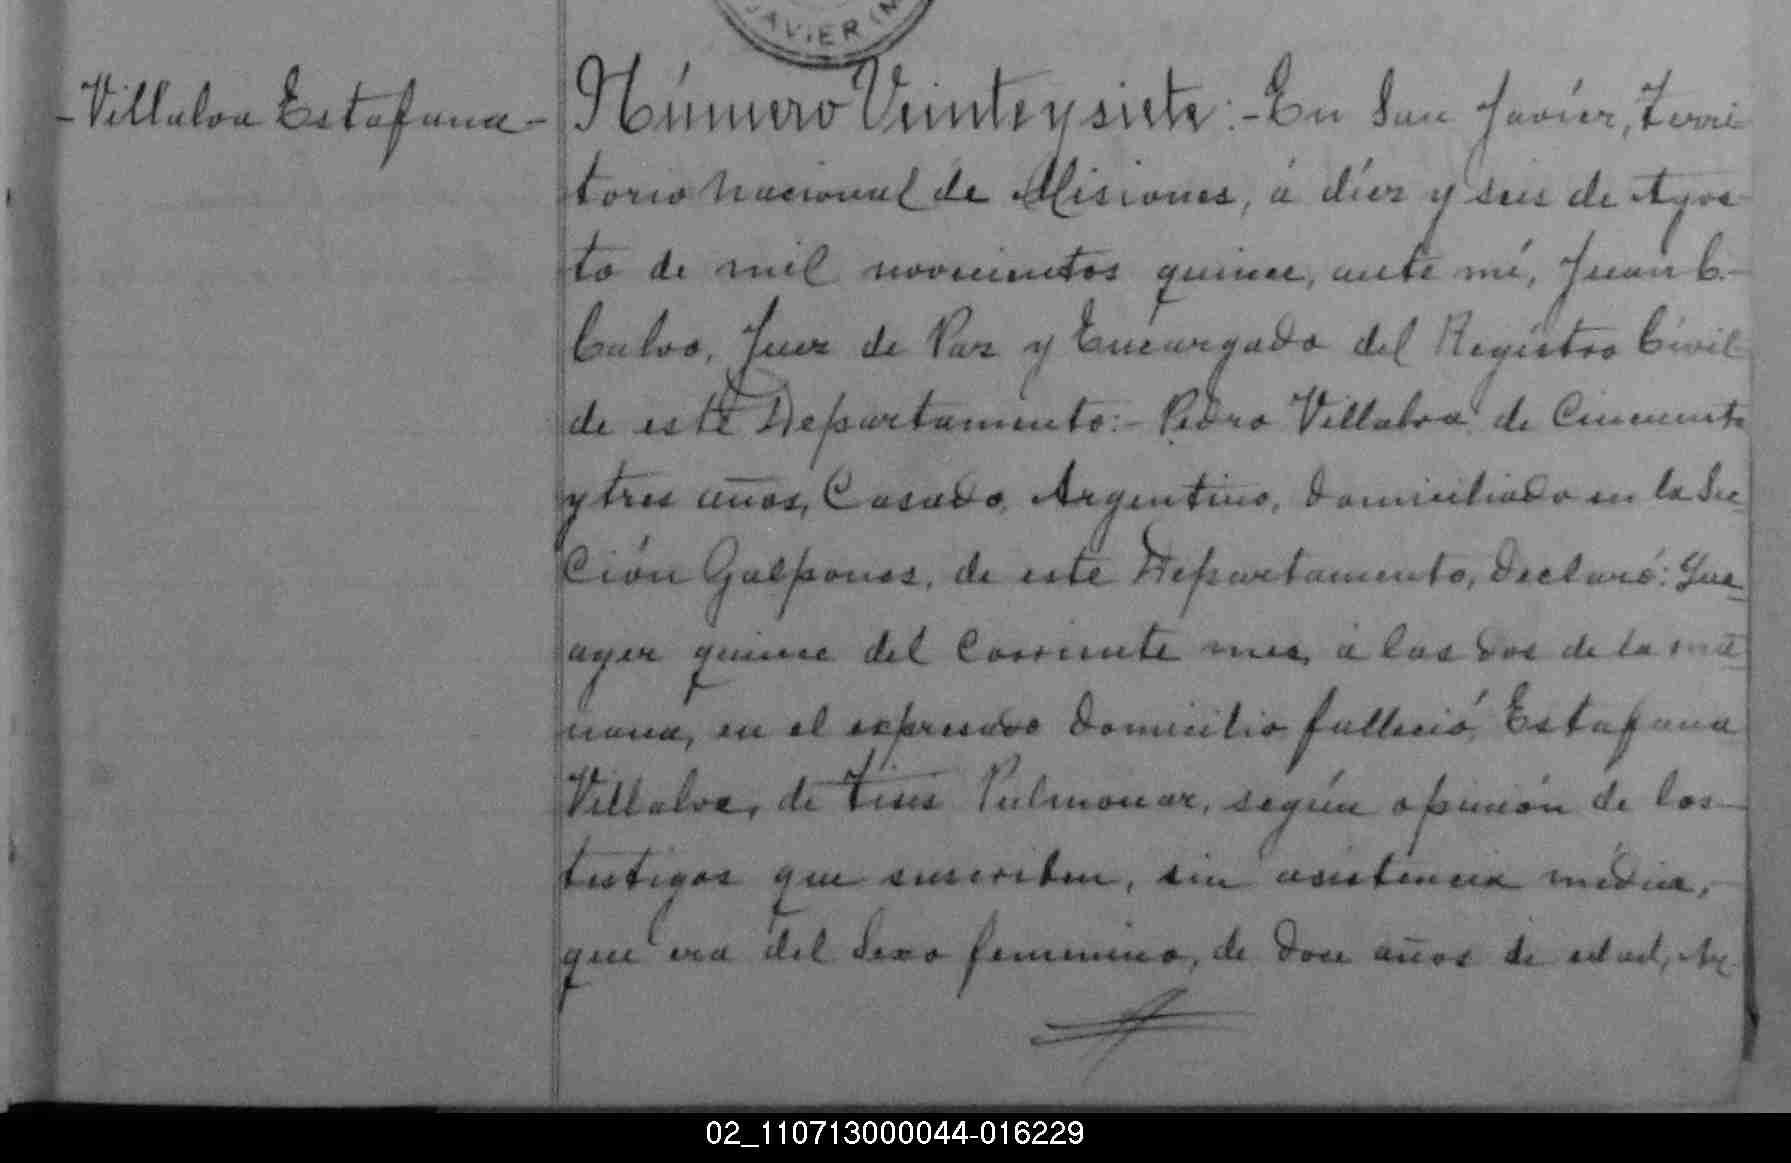 JAVIER (M
-Villalva Estafana-
Número Veinte y siete:- En San Javier, Terri-
torio Nacional de Misiones, á diez y seis de Agos-
to de mil novecientos quince, ante mí, Juan C.
Calvo, Juez de Paz y Encargado del Registro Civil
de este Departamento:- Pedro Villalva, de Cincuenta
y tres años, Casado, Argentino, domiciliado en la Sec-
ción Galpones, de este Departamento, declaró: Que
ayer quince del Corriente mes, á las dos de la ma-
ñana, en el expresado domicilio falleció, Estafana
Villalva, de Tisis Pulmonar, según opinión de los
testigos que suscriben, sin asistencia médica,
que era del Sexo femenino, de doce años de edad, Ar-
02_110713000044-016229